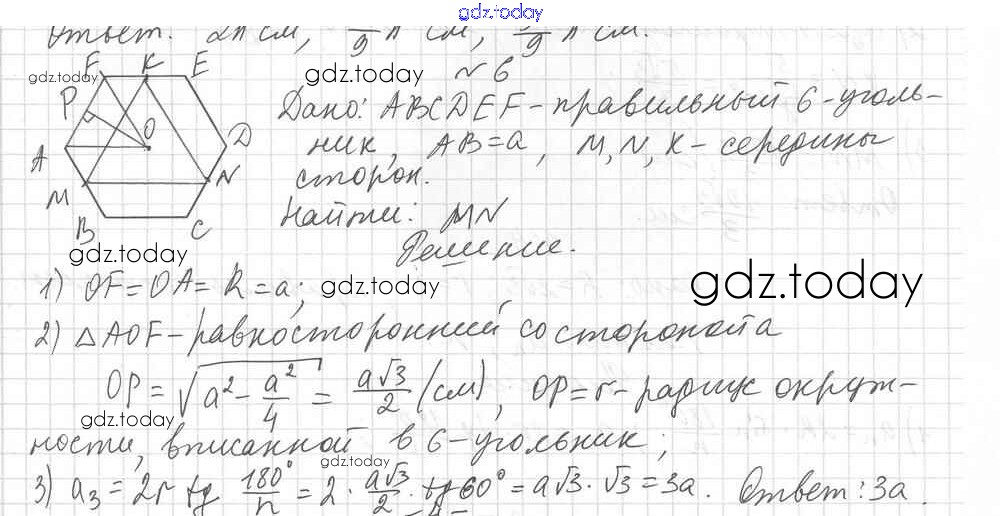 gdz.today
Ответ: 2π см, π/9 см, π/9 см.
gdz.today
gdz.today
F K E
P O
A D
M N
B C
№ 6
Дано: ABCDEF – правильный 6-уголь-
ник, AB = a, M, N, K – середины
сторон.
Найти: MN
Решение.
gdz.today
gdz.today
1) OF = OA = R = a;
gdz.today
2) △AOF – равносторонний со стороной a
OP = √(a² – a²/4) = a√3/2 (см), OP = r – радиус окруж-
gdz.today
ности, вписанной в 6-угольник;
gdz.today
3) a₃ = 2r tg 180°/n = 2 · a√3/2 · tg 60° = a√3 · √3 = 3a. Ответ: 3a.